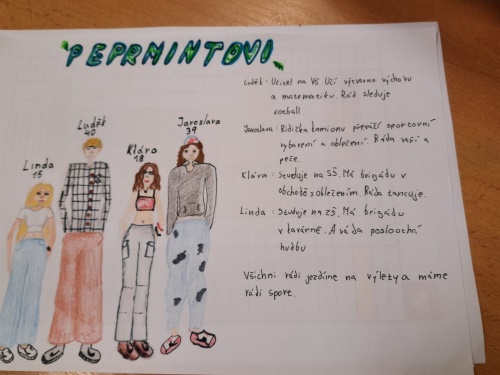 PEPRMINTOVI
Linda
15
Luděk
40
Klára
18
Jaroslava
39
Luděk: Učitel na VŠ Učí výtvarno výchovu
a matematiku. Rád sleduje
fotball.
Jaroslava: Řidička kamionu převáží sportovní
vybavení a oblečení. Ráda vaří a
peče.
Klára: Studuje na SŠ. Má brigádu v
obchodě s oblečením. Ráda tancuje.
Linda: Studuje na ZŠ. Má brigádu
v kavárně. A ráda poslouchá
hudbu
Všichni rádi jezdíme na výlety a máme
rádi sport.